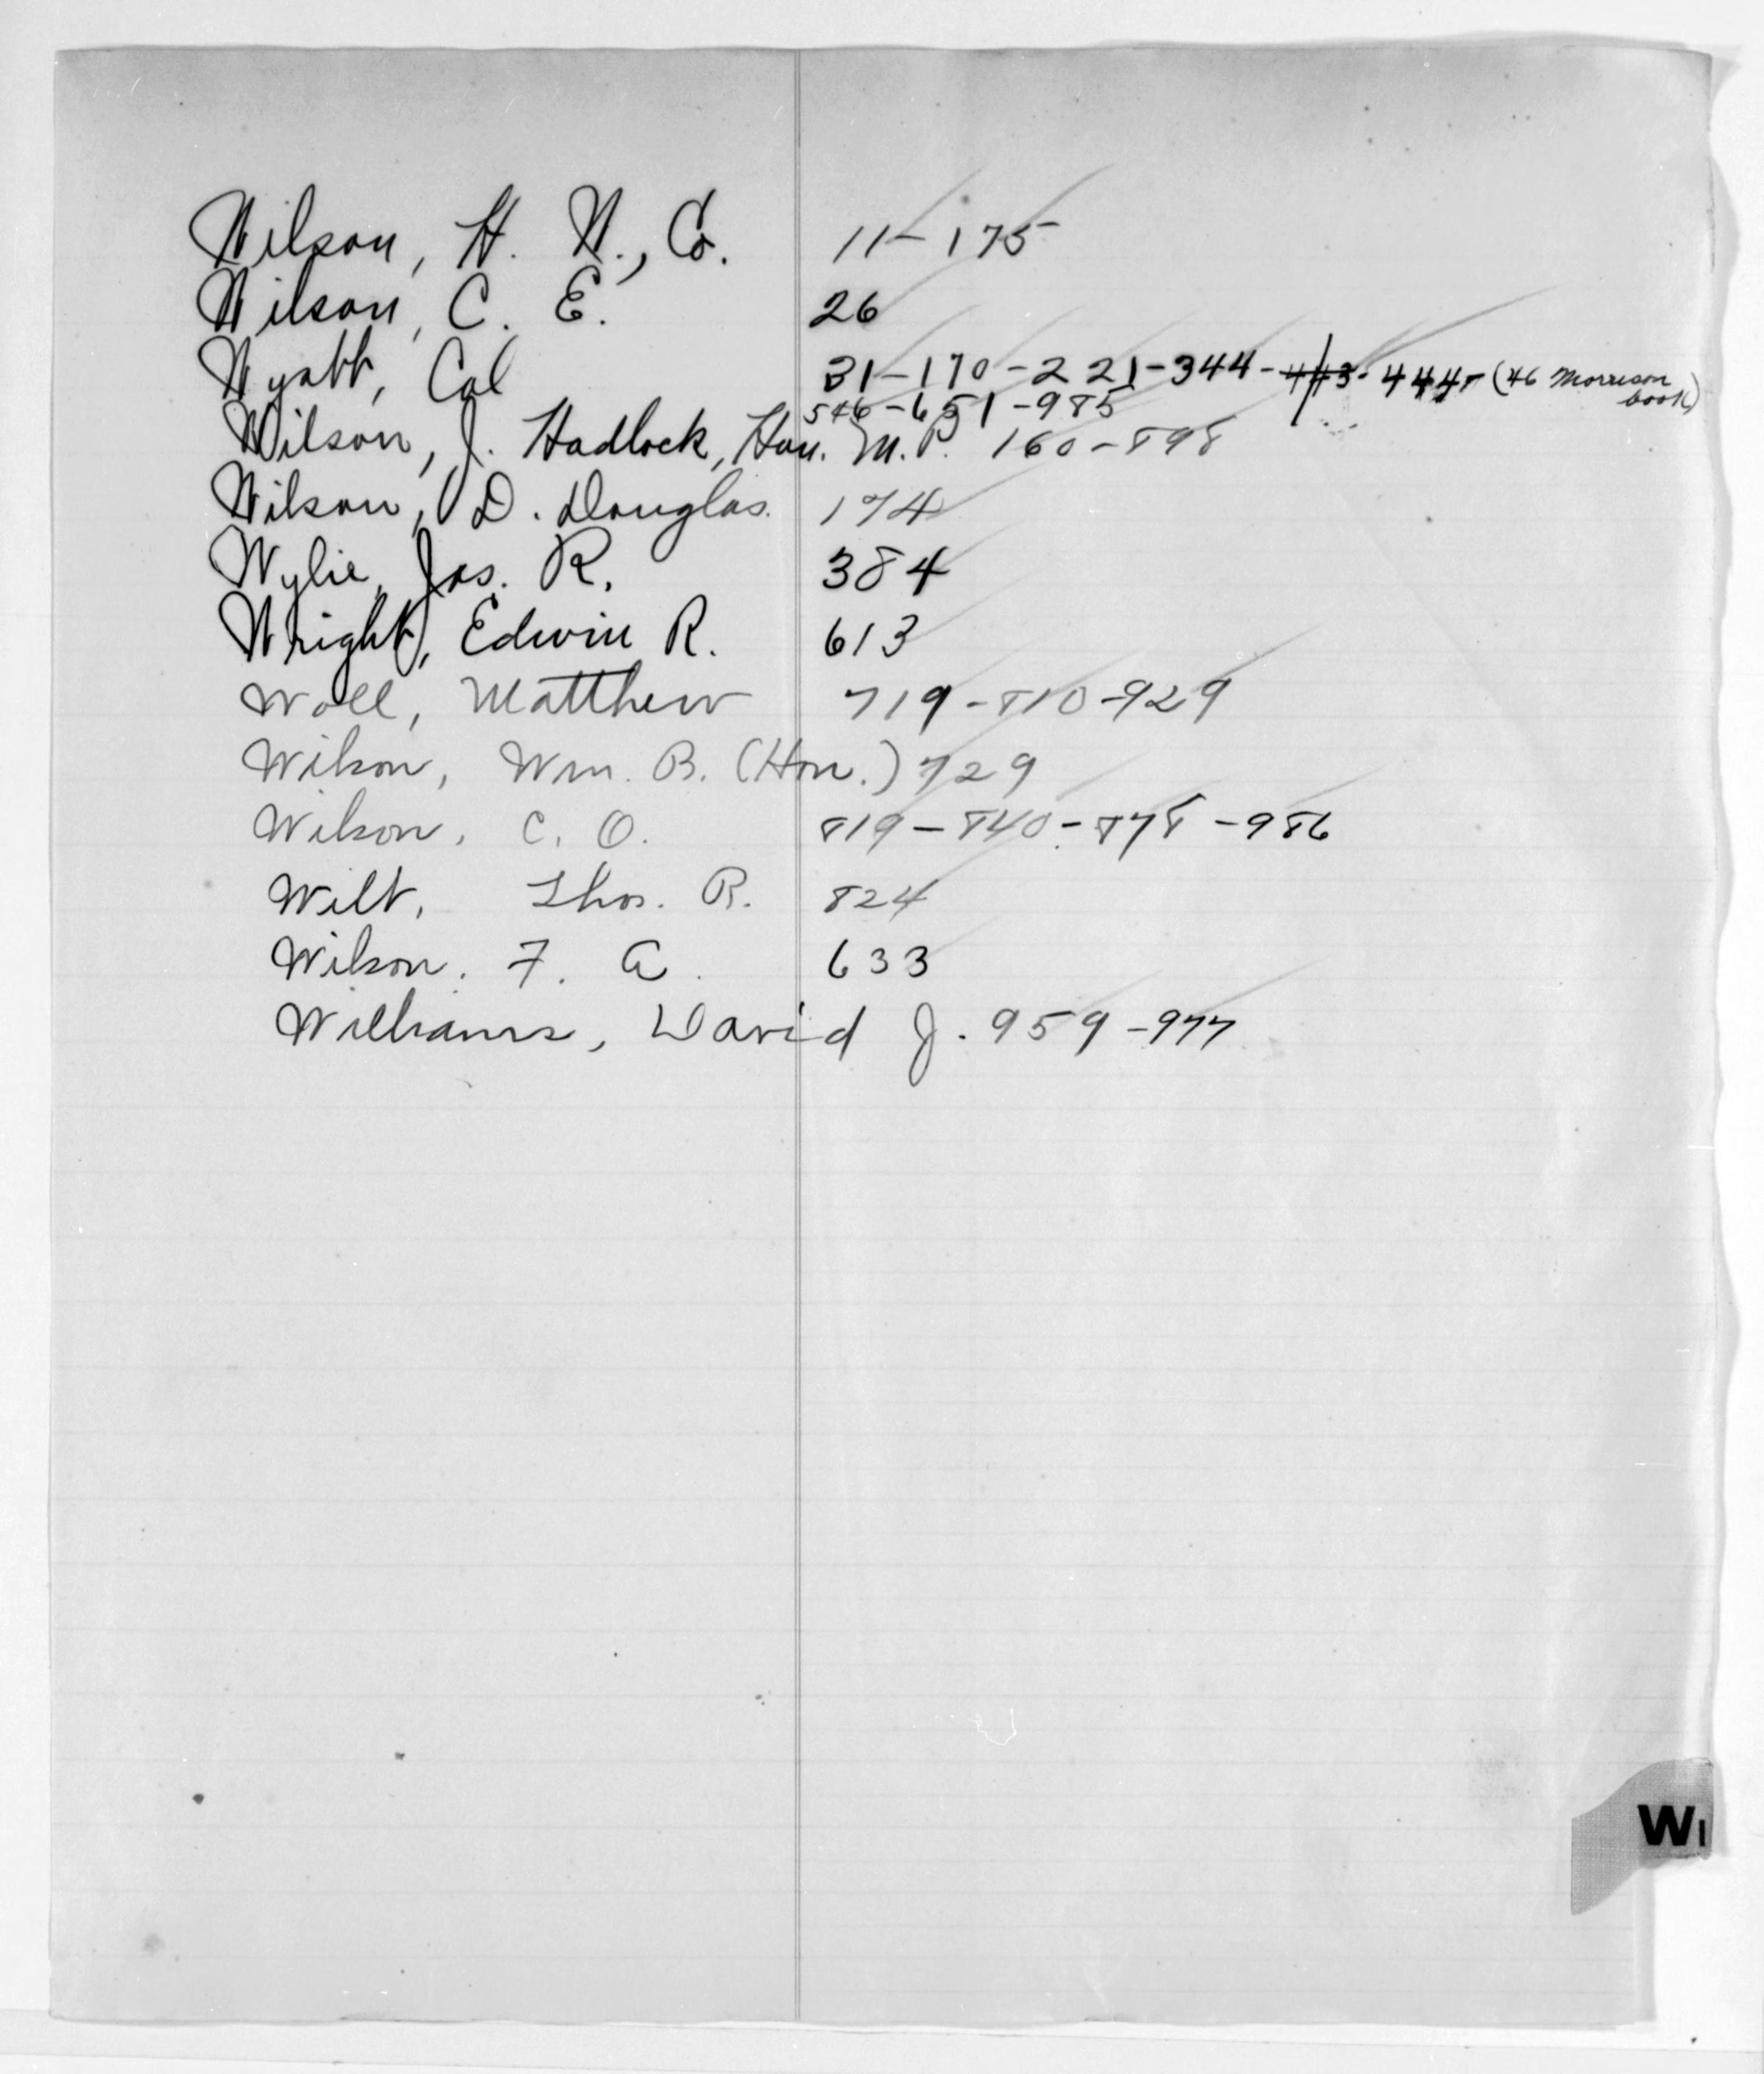 Wilson, H. W., Co. 11-175
Wilson, C. E. 26
Wyatt, Cal 31-170-221-344-443-444-(46 Morrison book)
546-651-985
Wilson, J. Hadlock, Hon. M.P. 160-898
Wilson, D. Douglas. 174
Wylie, Jas. R. 384
Wright, Edwin R. 613
Woll, Matthew 719-810-929
Wilson, Wm. B. (Hon.) 729
Wilson, C. O. 819-840-878-986
Wilt, Thos. R. 824
Wilson. F. A. 633
Williams, David J. 959-977
WI